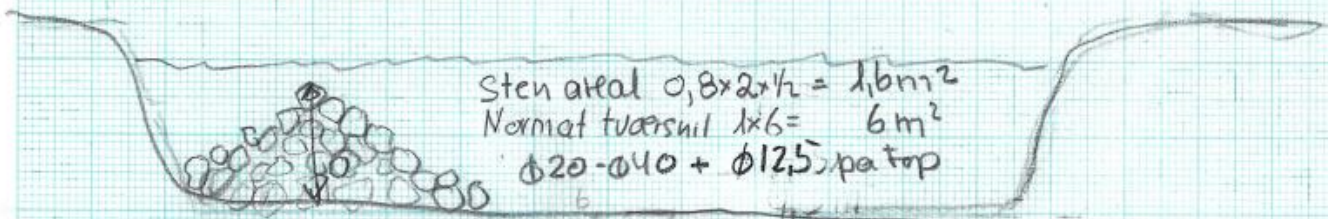 Sten areal 0,8x2x½ = 1,6m²
Normat tværsnit 1x6= 6m²
ϕ20-ϕ40 + ϕ12,5 pa top
6